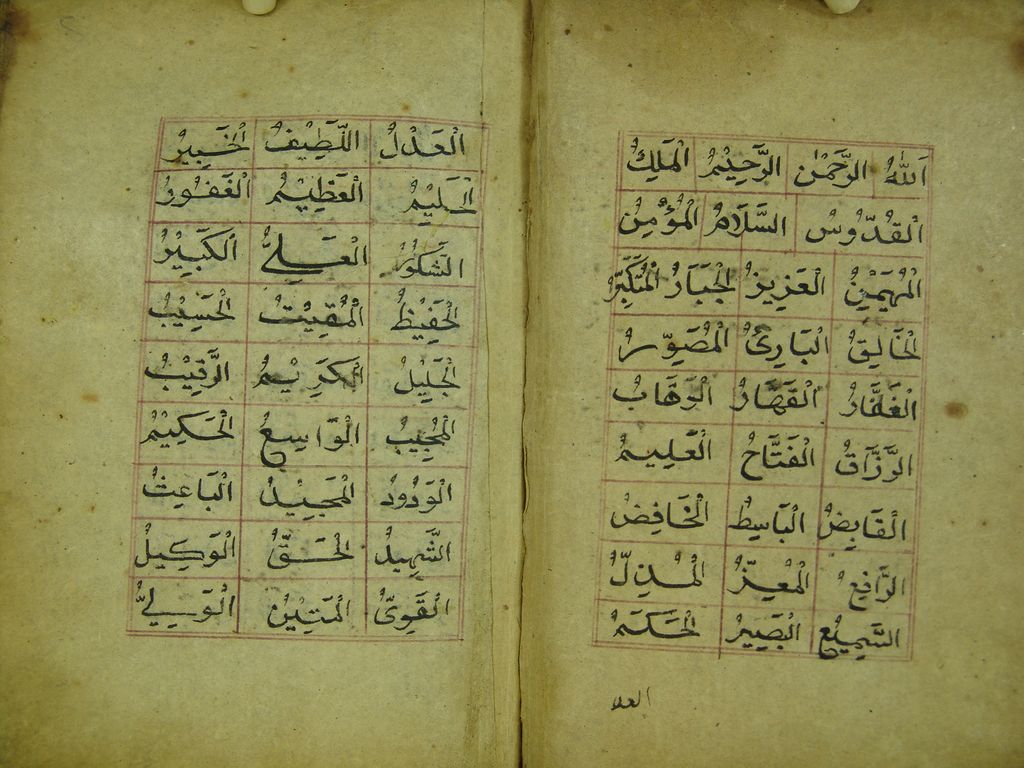 اَللّٰهُ الرَّحْمٰنُ الرَّحِيْمُ الْمَلِكُ
اَلْقُدُّوسُ السَّلَامُ الْمُؤْمِنُ
الْمُهَيْمِنُ الْعَزِيزُ الْجَبَّارُ الْمُتَكَبِّرُ
الْخَالِقُ الْبَارِئُ الْمُصَوِّرُ
الْغَفَّارُ الْقَهَّارُ الْوَهَّابُ
الرَّزَّاقُ الْفَتَّاحُ الْعَلِيمُ
الْقَابِضُ الْبَاسِطُ الْخَافِضُ
الرَّافِعُ الْمُعِزُّ الْمُذِلُّ
السَّمِيْعُ الْبَصِيْرُ الْحَكَمُ
العدل
الْعَدْلُ اللَّطِيْفُ الْخَبِيْرُ
الْحَلِيْمُ الْعَظِيْمُ الْغَفُورُ
الشَّكُورُ الْعَلِيُّ الْكَبِيْرُ
الْحَفِيْظُ الْمُقِيْتُ الْحَسِيْبُ
الْجَلِيْلُ الْكَرِيْمُ الرَّقِيْبُ
الْمُجِيْبُ الْوَاسِعُ الْحَكِيْمُ
الْوَدُودُ الْمَجِيْدُ الْبَاعِثُ
الشَّهِيْدُ الْحَقُّ الْوَكِيْلُ
الْقَوِيُّ الْمَتِيْنُ الْوَلِيُّ